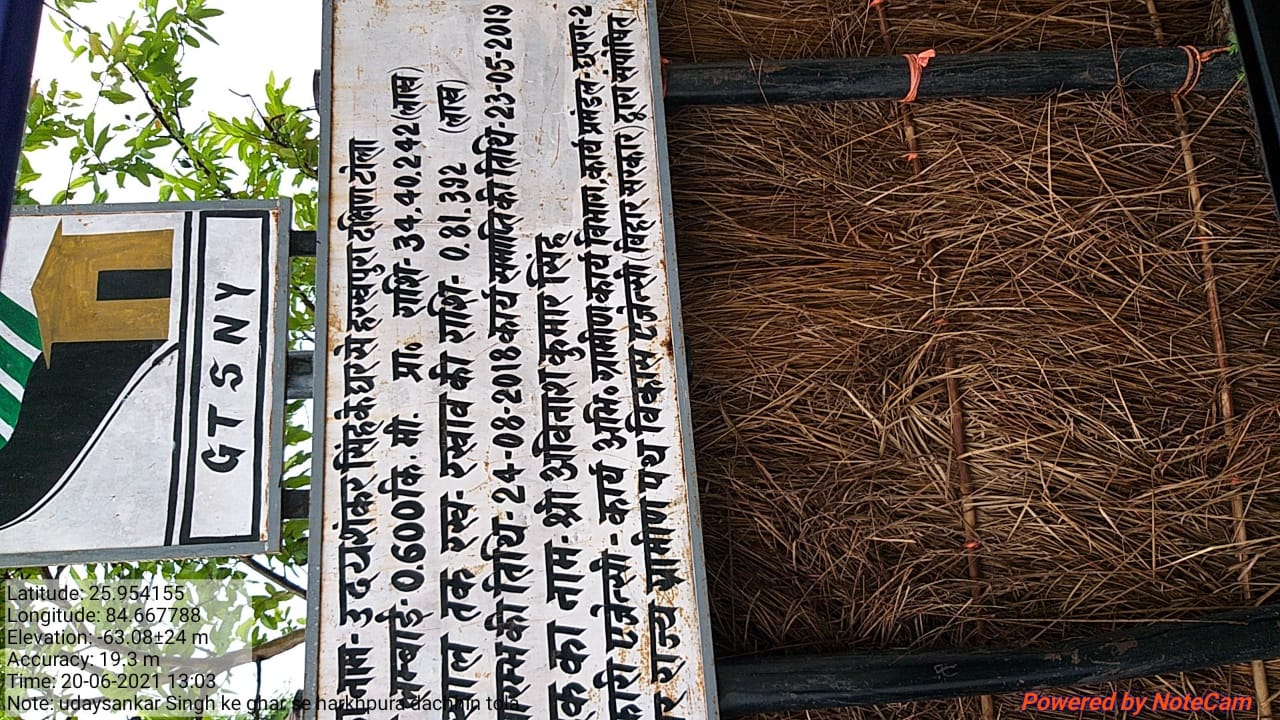 GTSNY
नाम- उदयशंकर सिंह के घर से हरखपुरा दक्षिण टोला
लम्बाई- 0.600 कि. मी. प्रा० राशि- 34.40.242 (लाख)
साल तक रख- रखाव की राशि- 0.81.392 (लाख)
की तिथि- 24-08-2018 कार्य समाप्ति की तिथि- 23-05-2019
का नाम- श्री अविनाश कुमार सिंह
एजेन्सी - कार्य अभि० ग्रामीण कार्य विभाग, कार्य प्रमंडल- छपरा-2
राज्य ग्रामीण पथ विकास एजेन्सी (बिहार सरकार) द्वारा संपोषित
Latitude: 25.954155
Longitude: 84.667788
Elevation: -63.08±24 m
Accuracy: 19.3 m
Time: 20-06-2021 13:03
Note: udaysankar Singh ke ghar se harkhpura dachhin tola
Powered by NoteCam